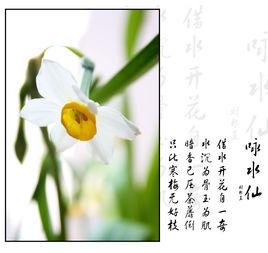 咏水仙
刘邦直
借水开花自一奇
水沉为骨玉为肌
暗香已压荼蘼倒
只比寒梅无好枝